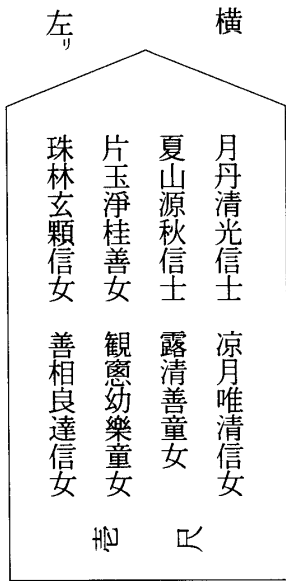 横
左リ
月丹清光信士　凉月唯清信女
夏山源秋信士　露清善童女
片玉淨桂善女　観窻幼樂童女
珠林玄顆信女　善相良達信女
尺
壱